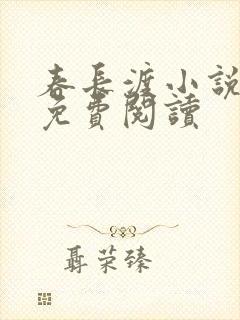 春長渡小說
免費閱讀
聶荣臻